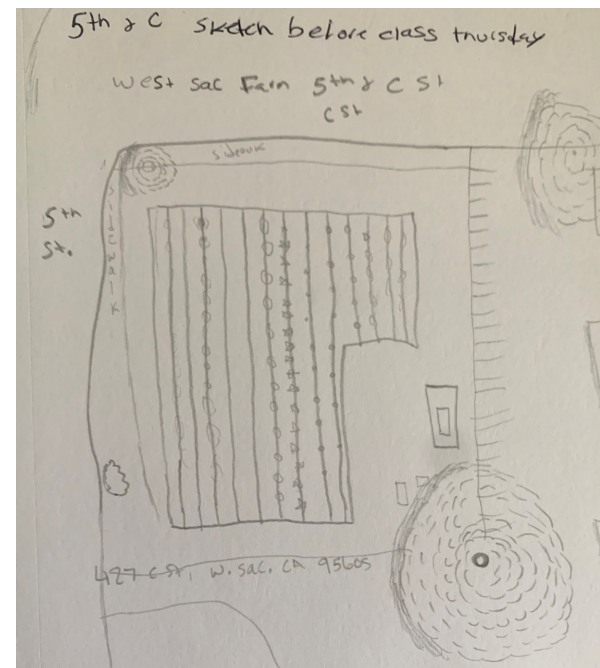 5th & C Sketch before class thursday
West Sac Farm 5th & C St
C St
Sidewalk
5th
St.
SIDEWALK
427 C St, W. Sac, CA 95605